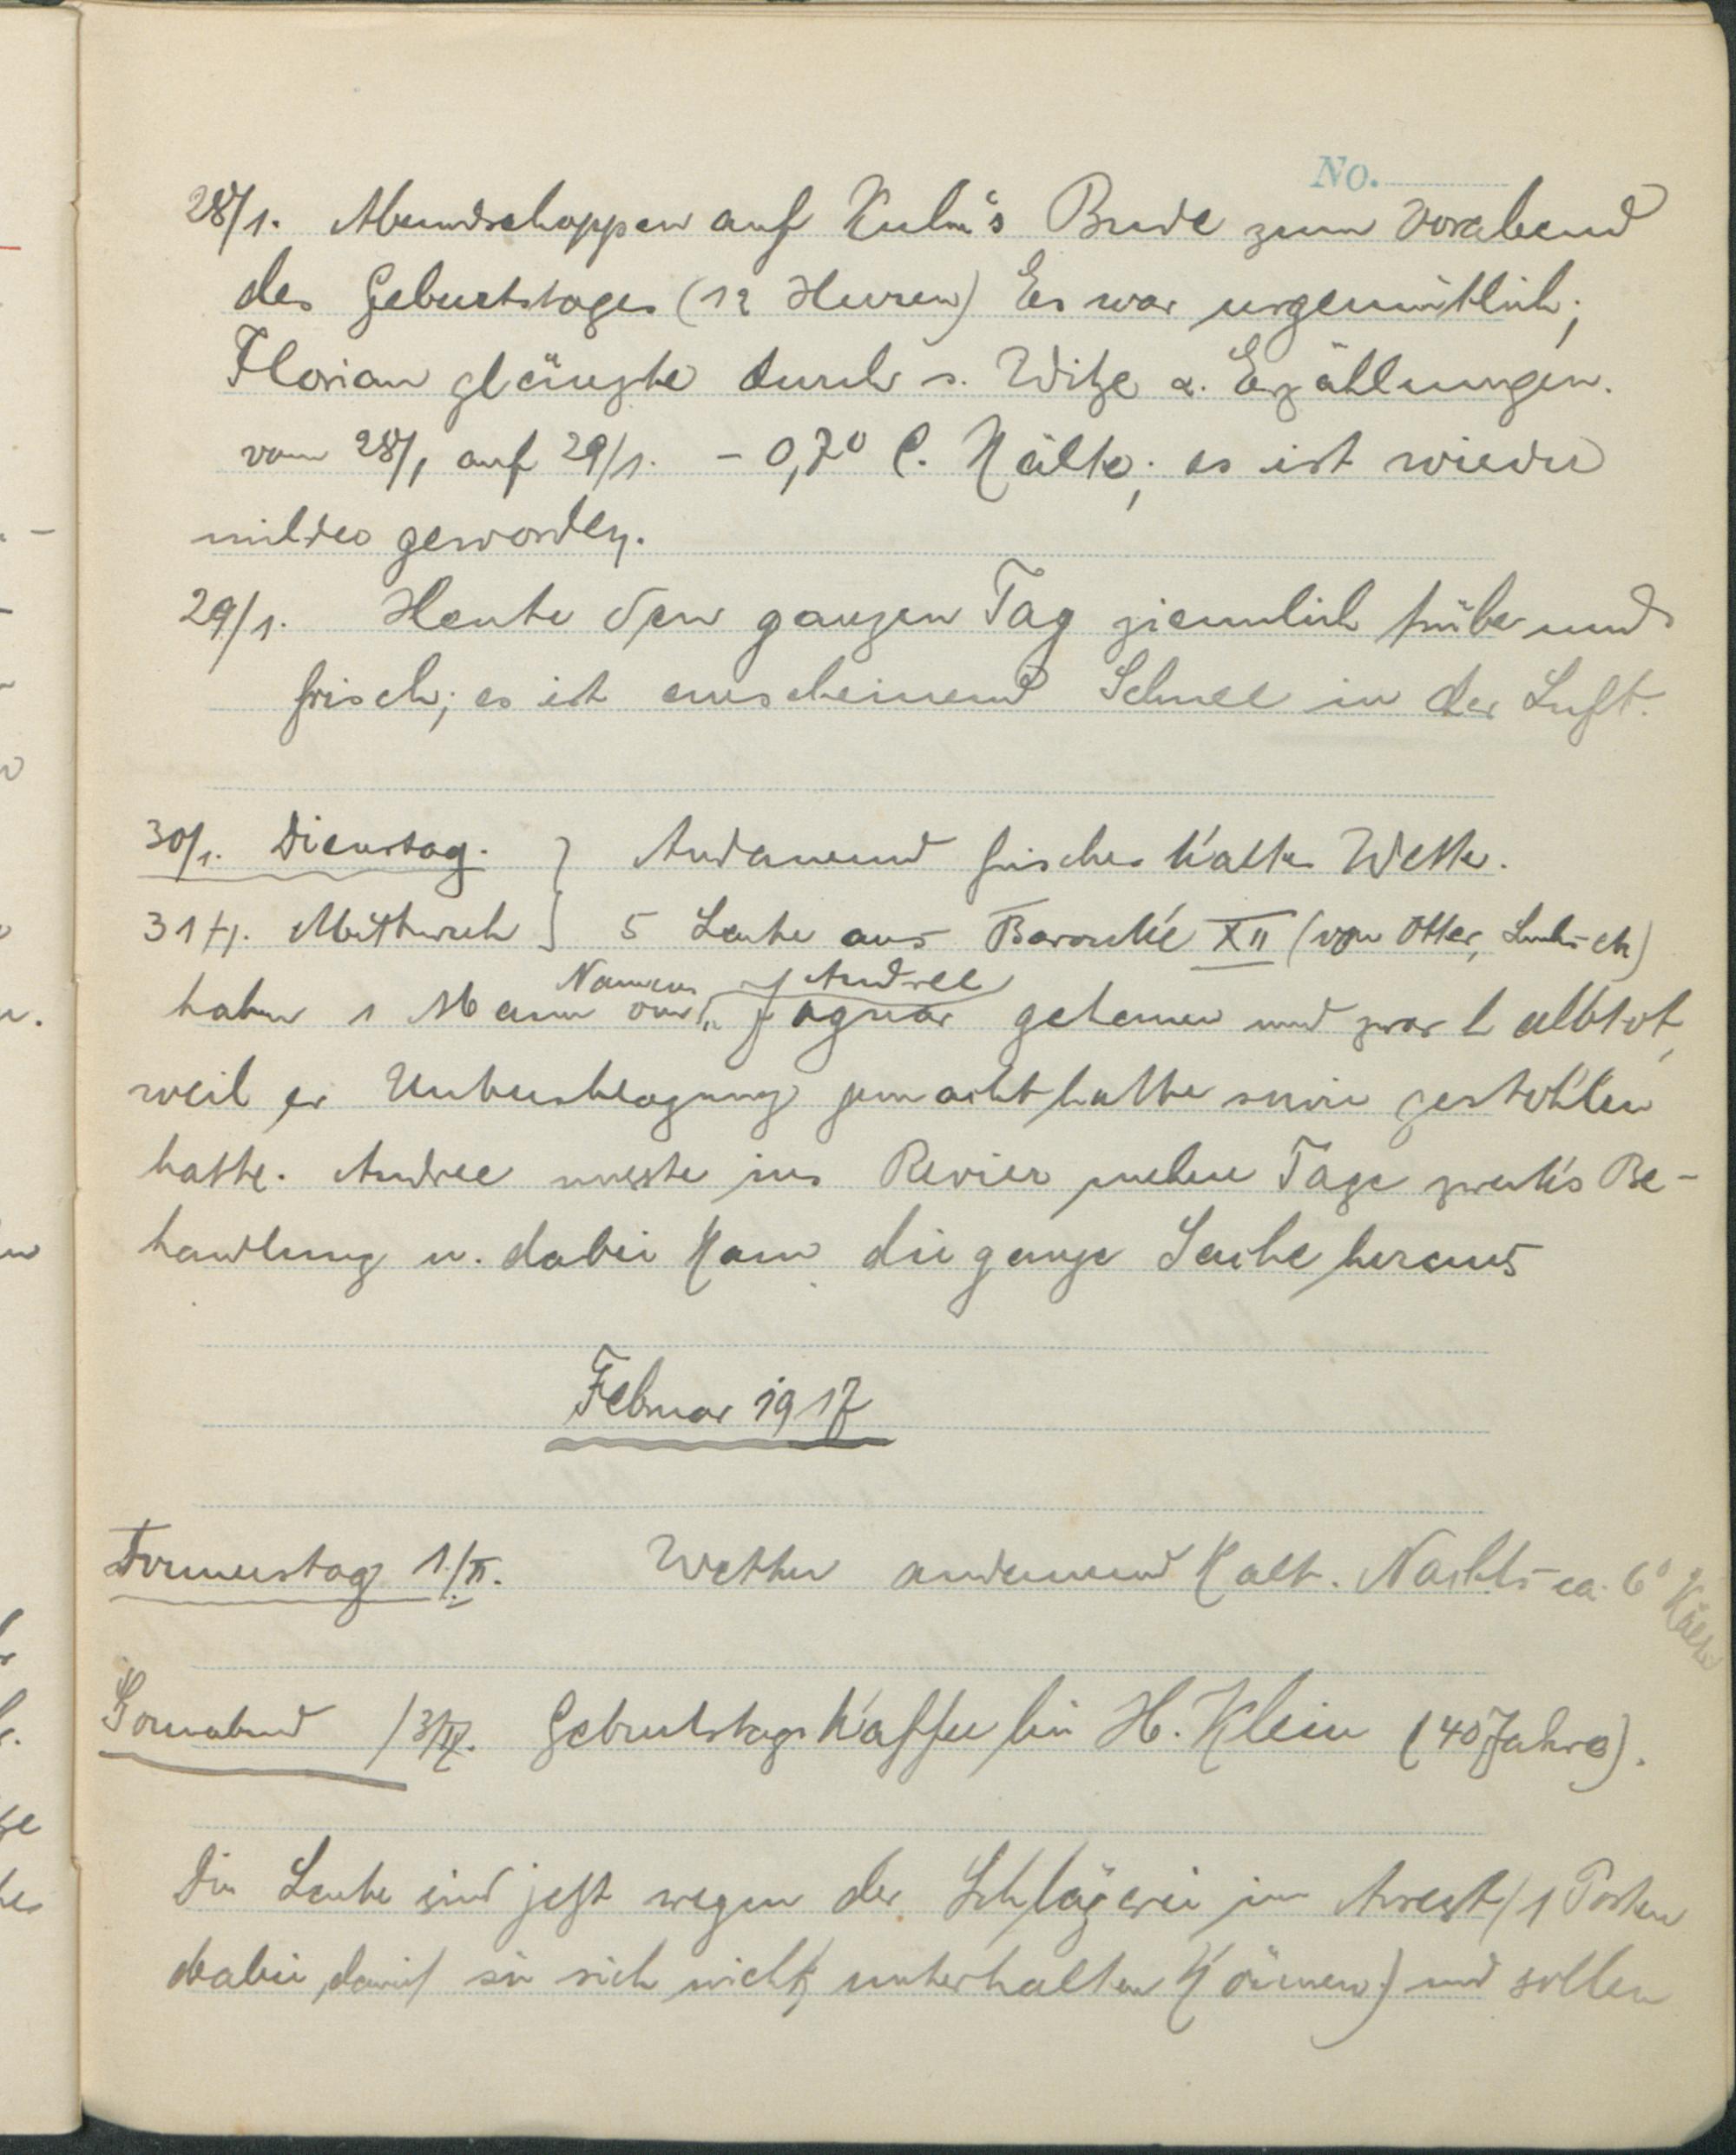 No.
28/1. Abendschoppen auf Kuhn's Bude zum Vorabend
des Geburtstages (12 Herren) Es war urgemütlich;
Florian glänzte durch s. Witze u. Erzählungen.
vom 28/1 auf 29/1. - 0,7° C. Kälte; es ist wieder
milder geworden.
29/1. Heute den ganzen Tag ziemlich trübe und
frisch; es ist anscheinend Schnee in der Luft.
30/1. Dienstag. } Andauernd frisches kaltes Wetter.
31/1. Mittwoch } 5 Leute aus Baracke XII (von Otter,
Namens Andree
haben 1 Mann gehauen und zwar halbtot,
weil er Unterschlagung gemacht hatte sowie gestohlen
hatte. Andree musste ins Revier mehrere Tage zwecks Be-
handlung u. dabei kam die ganze Sache heraus
Februar 1917
Donnerstag 1./II. Wetter andauernd kalt. Nachts ca. 6° Kälte
Sonnabend /3/II. Geburtstagskaffee bei H. Klein (40 Jahre).
Die Leute sind jetzt wegen der Schlägerei im Arrest (1 Posten
dabei, damit sie sich nicht unterhalten können) und sollen